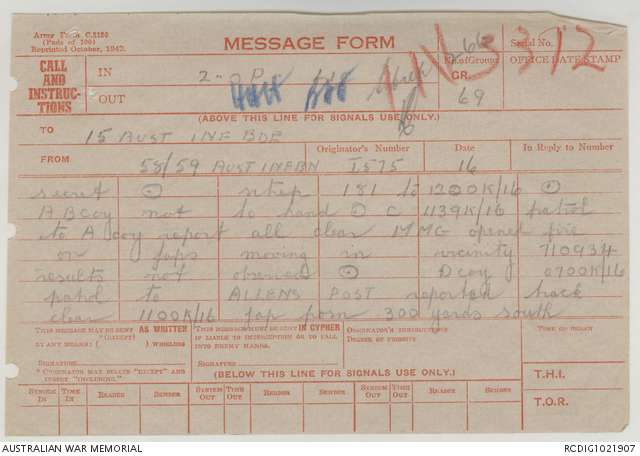 Army Form C.2136
(Pads of 100)
Reprinted October, 1942.
MESSAGE FORM
Serial No.
CALL
AND
INSTRUC-
TIONS
IN
OUT
No. of Groups
GR.
69
OFFICE DATE STAMP
(ABOVE THIS LINE FOR SIGNALS USE ONLY.)
TO
15 AUST INF BDE
FROM
58/59 AUST INF BN
Originator's Number
I575
Date
16
In Reply to Number
secret ⊙ sitrep 181 to 1200K/16 ⊙
A B coy not to hand ⊙ C 1139K/16 patrol
to A coy report all clear MMG opened fire
on japs moving in vicinity 710934
results not observed ⊙ D coy 0700K/16
patrol to ALLENS POST reported back
clear 1100K/16 jap posn 300 yards south
THIS MESSAGE MAY BE SENT AS WRITTEN
(*EXCEPT)
BY ANY MEANS ( ) WIRELESS
SIGNATURE
* ORIGINATOR MAY DELETE "EXCEPT" AND
INSERT "INCLUDING."
*THIS MESSAGE MUST BE SENT IN CYPHER
IF LIABLE TO INTERCEPTION OR TO FALL
INTO ENEMY HANDS.
SIGNATURE
ORIGINATOR'S INSTRUCTIONS
DEGREE OF PRIORITY
TIME OF ORIGIN
(BELOW THIS LINE FOR SIGNALS USE ONLY.)
T.H.I.
T.O.R.
SYSTEM IN
TIME IN
READER
SENDER
SYSTEM OUT
TIME OUT
READER
SENDER
SYSTEM OUT
TIME OUT
READER
SENDER
AUSTRALIAN WAR MEMORIAL
RCDIG1021907